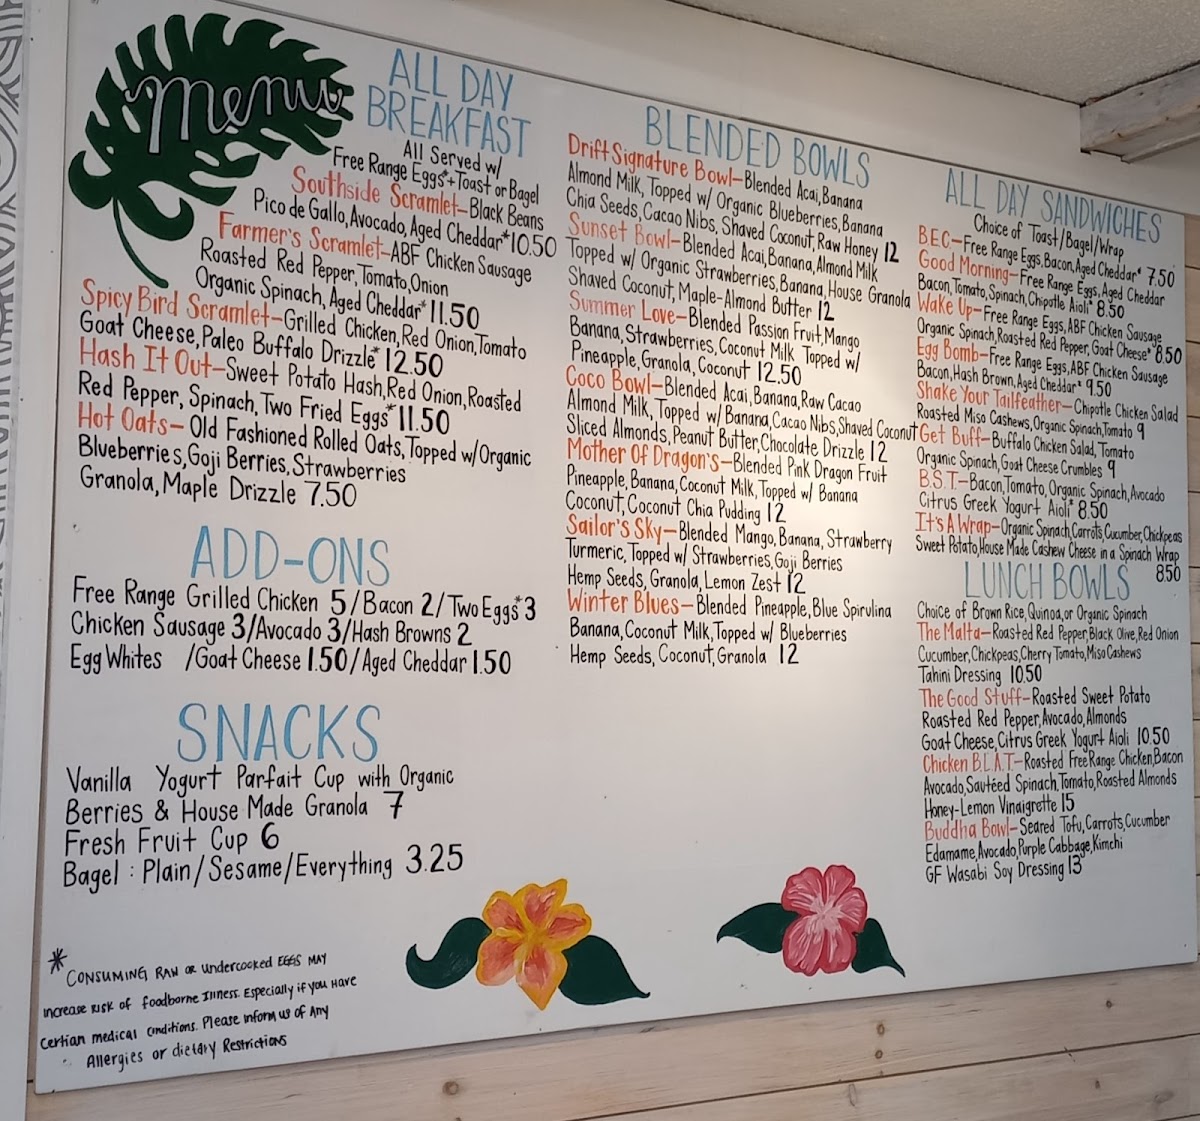 menu
ALL DAY
BREAKFAST
All Served w/
Free Range Eggs*+Toast or Bagel
Southside Scramlet—Black Beans
Pico de Gallo, Avocado, Aged Cheddar* 10.50
Farmer's Scramlet—ABF Chicken Sausage
Roasted Red Pepper, Tomato, Onion
Organic Spinach, Aged Cheddar* 11.50
Spicy Bird Scramlet—Grilled Chicken, Red Onion, Tomato
Goat Cheese, Paleo Buffalo Drizzle* 12.50
Hash It Out—Sweet Potato Hash, Red Onion, Roasted
Red Pepper, Spinach, Two Fried Eggs* 11.50
Hot Oats—Old Fashioned Rolled Oats, Topped w/Organic
Blueberries, Goji Berries, Strawberries
Granola, Maple Drizzle 7.50
ADD-ONS
Free Range Grilled Chicken 5/Bacon 2/Two Eggs* 3
Chicken Sausage 3/Avocado 3/Hash Browns 2
Egg Whites /Goat Cheese 1.50/Aged Cheddar 1.50
SNACKS
Vanilla Yogurt Parfait Cup with Organic
Berries & House Made Granola 7
Fresh Fruit Cup 6
Bagel : Plain/Sesame/Everything 3.25
* CONSUMING RAW or undercooked EGGS MAY
increase risk of foodborne Illness. Especially if you have
certian medical conditions. Please inform us of Any
Allergies or dietary Restrictions
BLENDED BOWLS
Drift Signature Bowl—Blended Acai, Banana
Almond Milk, Topped w/ Organic Blueberries, Banana
Chia Seeds, Cacao Nibs, Shaved Coconut, Raw Honey 12
Sunset Bowl—Blended Acai, Banana, Almond Milk
Topped w/ Organic Strawberries, Banana, House Granola
Shaved Coconut, Maple-Almond Butter 12
Summer Love—Blended Passion Fruit, Mango
Banana, Strawberries, Coconut Milk Topped w/
Pineapple, Granola, Coconut 12.50
Coco Bowl—Blended Acai, Banana, Raw Cacao
Almond Milk, Topped w/ Banana, Cacao Nibs, Shaved Coconut
Sliced Almonds, Peanut Butter, Chocolate Drizzle 12
Mother Of Dragon's—Blended Pink Dragon Fruit
Pineapple, Banana, Coconut Milk, Topped w/ Banana
Coconut, Coconut Chia Pudding 12
Sailor's Sky—Blended Mango, Banana, Strawberry
Turmeric, Topped w/ Strawberries, Goji Berries
Hemp Seeds, Granola, Lemon Zest 12
Winter Blues—Blended Pineapple, Blue Spirulina
Banana, Coconut Milk, Topped w/ Blueberries
Hemp Seeds, Coconut, Granola 12
ALL DAY SANDWICHES
Choice of Toast/Bagel/Wrap
BEC—Free Range Eggs, Bacon, Aged Cheddar* 7.50
Good Morning—Free Range Eggs, Aged Cheddar
Bacon, Tomato, Spinach, Chipotle Aioli* 8.50
Wake Up—Free Range Eggs, ABF Chicken Sausage
Organic Spinach, Roasted Red Pepper, Goat Cheese* 8.50
Egg Bomb—Free Range Eggs, ABF Chicken Sausage
Bacon, Hash Brown, Aged Cheddar* 9.50
Shake Your Tailfeather—Chipotle Chicken Salad
Roasted Miso Cashews, Organic Spinach, Tomato 9
Get Buff—Buffalo Chicken Salad, Tomato
Organic Spinach, Goat Cheese Crumbles 9
B.S.T—Bacon, Tomato, Organic Spinach, Avocado
Citrus Greek Yogurt Aioli* 8.50
It's A Wrap—Organic Spinach, Carrots, Cucumber, Chickpeas
Sweet Potato, House Made Cashew Cheese in a Spinach Wrap
8.50
LUNCH BOWLS
Choice of Brown Rice, Quinoa, or Organic Spinach
The Malta—Roasted Red Pepper, Black Olive, Red Onion
Cucumber, Chickpeas, Cherry Tomato, Miso Cashews
Tahini Dressing 10.50
The Good Stuff—Roasted Sweet Potato
Roasted Red Pepper, Avocado, Almonds
Goat Cheese, Citrus Greek Yogurt Aioli 10.50
Chicken B.L.A.T—Roasted Free Range Chicken, Bacon
Avocado, Sautéed Spinach, Tomato, Roasted Almonds
Honey-Lemon Vinaigrette 15
Buddha Bowl—Seared Tofu, Carrots, Cucumber
Edamame, Avocado, Purple Cabbage, Kimchi
GF Wasabi Soy Dressing 13